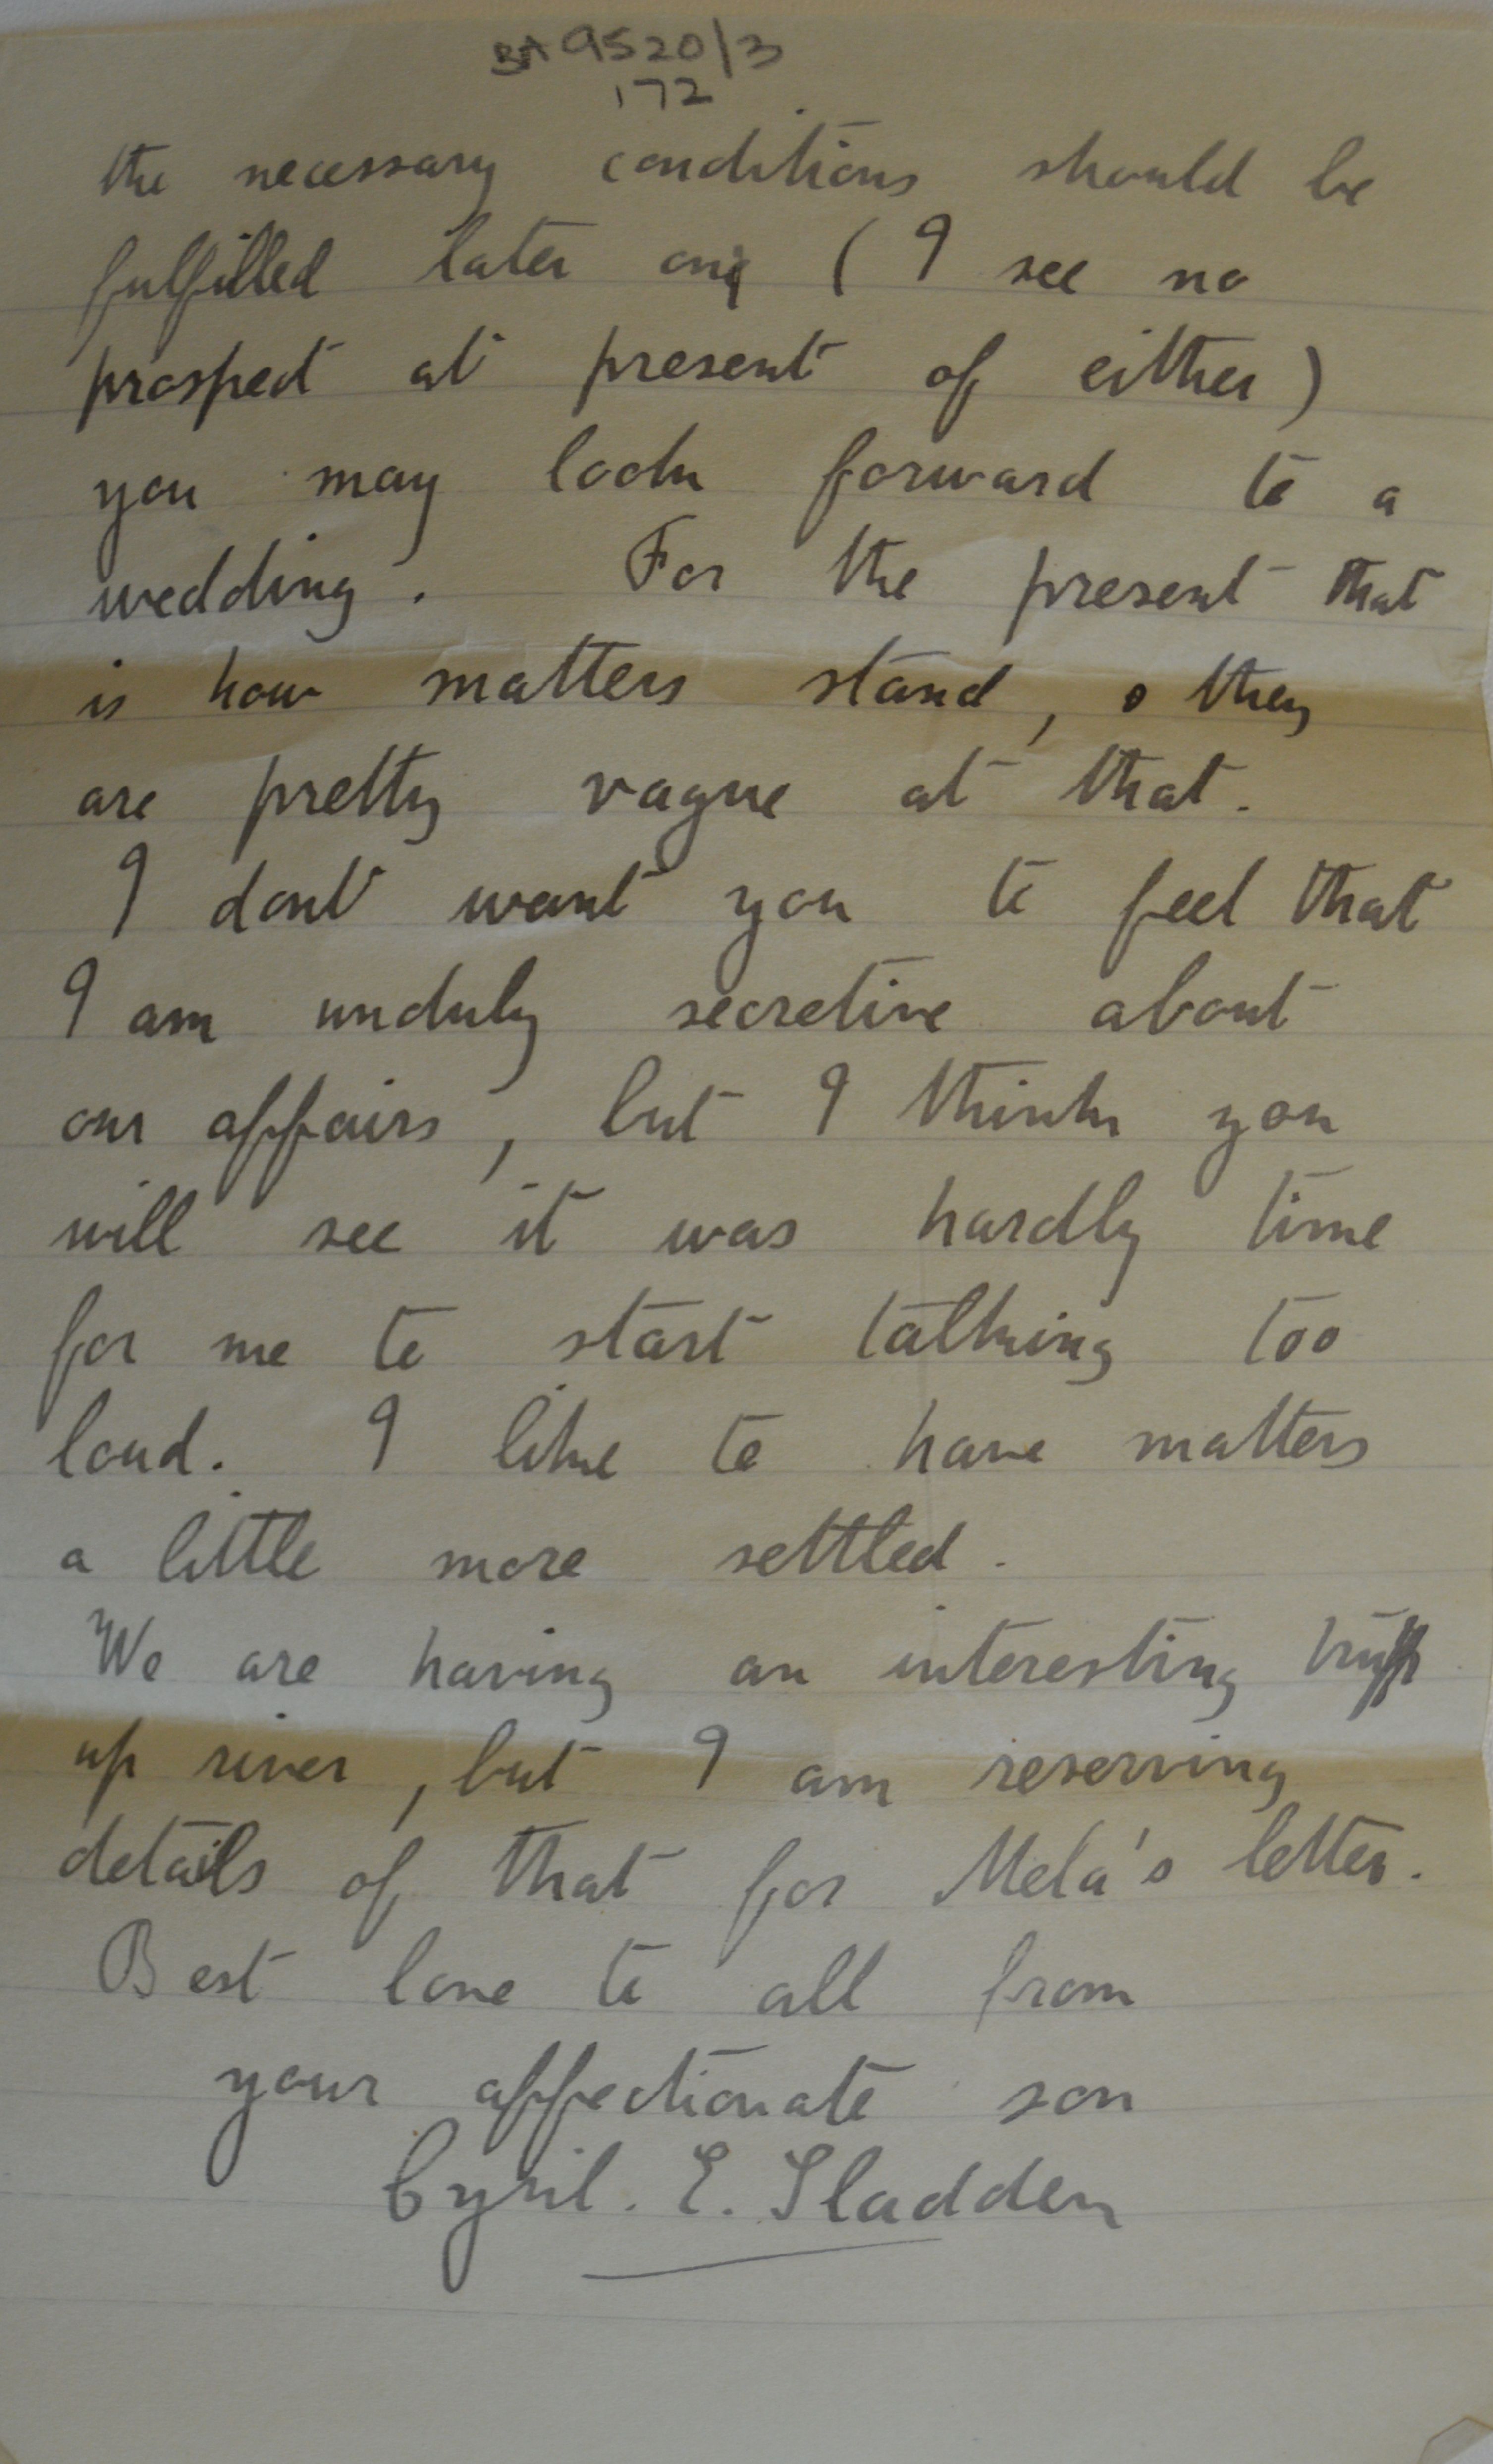 BA 9520/3
172
the necessary conditions should be
fulfilled later on (I see no
prospect at present of either)
you may look forward to a
wedding. For the present that
is how matters stand, & they
are pretty vague at that.
I dont want you to feel that
I am unduly secretive about
our affairs, but I think you
will see it was hardly time
for me to start talking too
loud. I like to have matters
a little more settled.
We are having an interesting trip
up river, but I am reserving
details of that for Mela's letter.
Best love to all from
your affectionate son
Cyril. E. Sladden